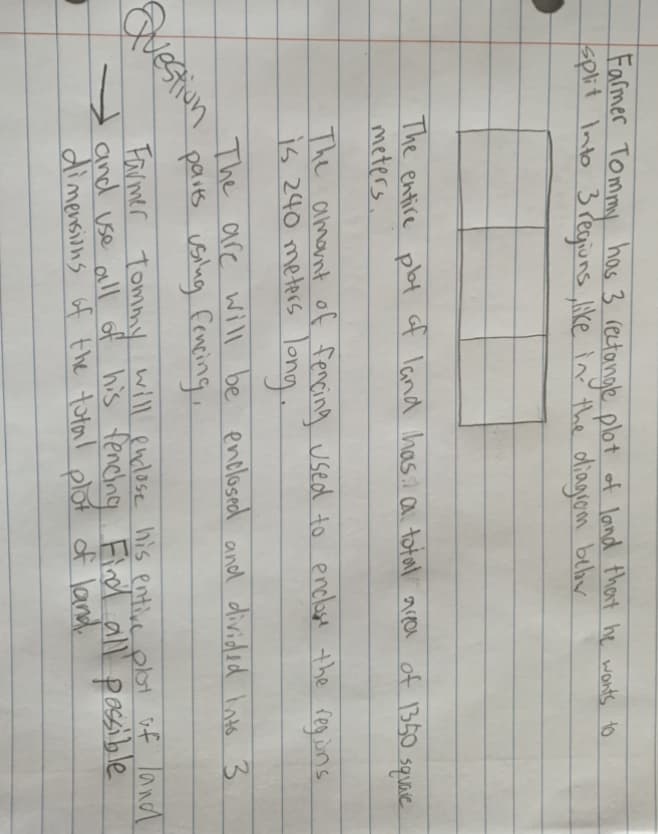 Farmer Tommy has 3 rectangle plot of land that he wants to
split into 3 regions, like in the diagram below
The entire plot of land has a total area of 1350 square
meters.
The amount of fencing used to enclose the regions
is 240 meters long.
The are will be enclosed and divided into 3
parts using fencing.
Question
Farmer Tommy will enclose his entire plot of land
→ and use all of his fencing. Find all possible
dimensions of the total plot of land.